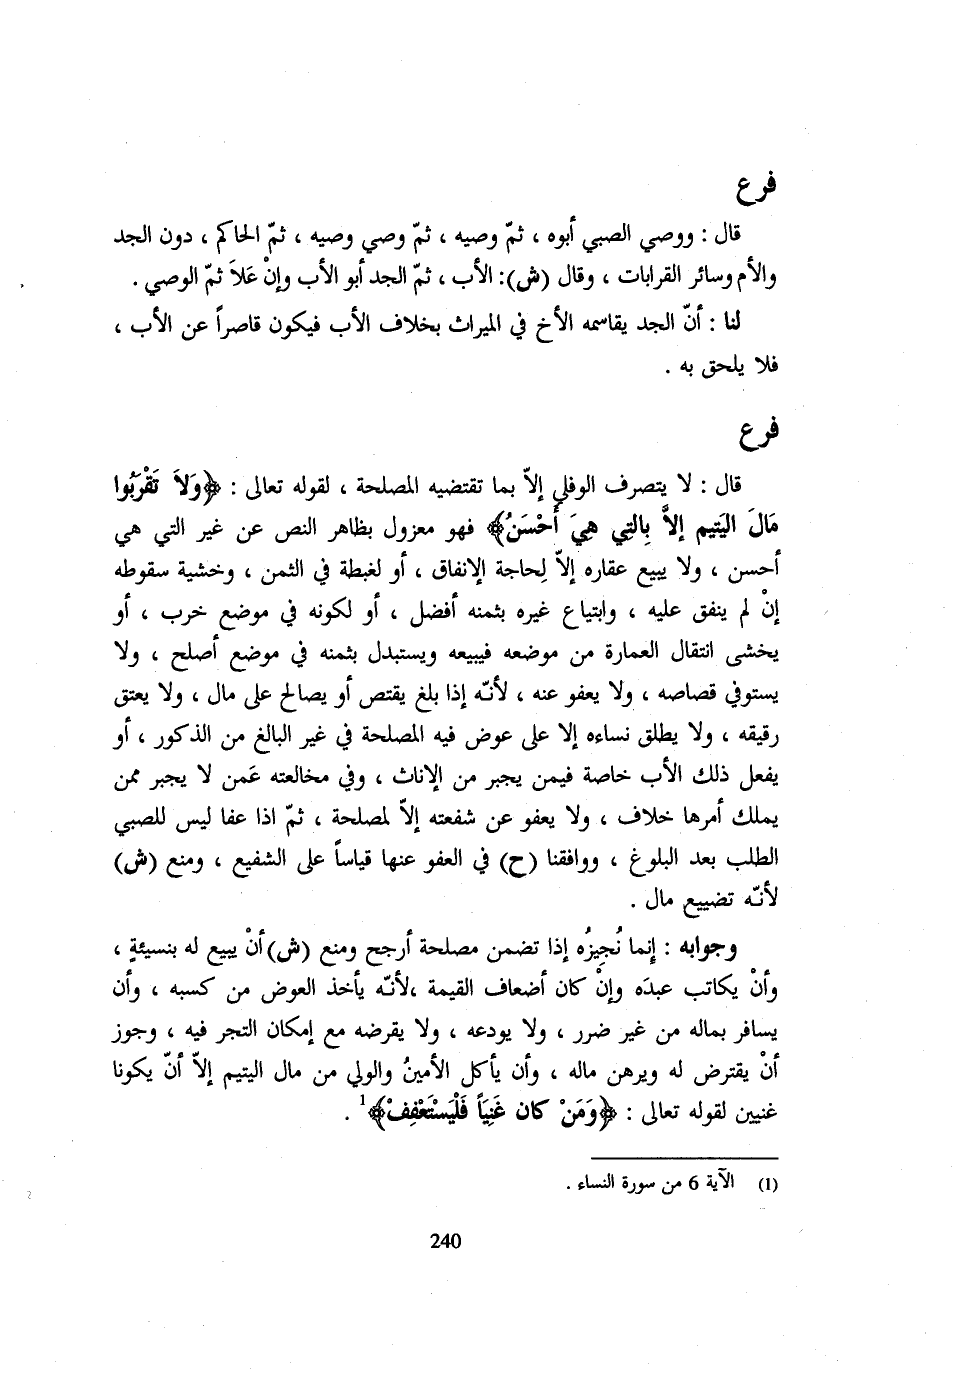 فرع
قال : ووصي الصبي أبوه ، ثمّ وصيه ، ثمّ وصي وصيه ، ثمّ الحاكم ، دون الجد
والأم وسائر القرابات ، وقال (ش): الأب ، ثمّ الجد أبو الأب وإنْ عَلاَ ثمّ الوصي .
لنا : أنّ الجد يقاسمه الأخ في الميراث بخلاف الأب فيكون قاصراً عن الأب ،
فلا يلحق به .
فرع
قال : لا يتصرف الوفلي إلاّ بما تقتضيه المصلحة ، لقوله تعالى : ﴿وَلاَ تَقْرَبُوا
مَالَ اليَتيم إلاَّ بِالتِي هِيَ أَحْسَنُ﴾ فهو معزول بظاهر النص عن غير التي هي
أحسن ، ولا يبيع عقاره إلاّ لِحاجة الإنفاق ، أو لغبطة في الثمن ، وخشية سقوطه
إنْ لم ينفق عليه ، وابتياع غيره بثمنه أفضل ، أو لكونه في موضع خرب ، أو
يخشى انتقال العمارة من موضعه فيبيعه ويستبدل بثمنه في موضع أصلح ، ولا
يستوفي قصاصه ، ولا يعفو عنه ، لأنّه إذا بلغ يقتص أو يصالح على مال ، ولا يعتق
رقيقه ، ولا يطلق نساءه إلا على عوض فيه المصلحة في غير البالغ من الذكور ، أو
يفعل ذلك الأب خاصة فيمن يجبر من الإناث ، وفي مخالعته عَمن لا يجبر ممن
يملك أمرها خلاف ، ولا يعفو عن شفعته إلاّ لمصلحة ، ثمّ اذا عفا ليس للصبي
الطلب بعد البلوغ ، ووافقنا (ح) في العفو عنها قياساً على الشفيع ، ومنع (ش)
لأنّه تضييع مال .
وجوابه : إنما نُجِيزُه إذا تضمن مصلحة أرجح ومنع (ش) أنْ يبيع له بنسيئةٍ ،
وأنْ يكاتب عبدَه وإنْ كان أضعاف القيمة ،لأنّه يأخذ العوض من كسبه ، وأن
يسافر بماله من غير ضرر ، ولا يودعه ، ولا يقرضه مع إمكان التجر فيه ، وجوز
أنْ يقترض له ويرهن ماله ، وأن يأكل الأمينُ والولي من مال اليتيم إلاّ أنّ يكونا
غنيين لقوله تعالى : ﴿وَمَنْ كان غَنِيَاً فَلْيَسْتَعْفِفْ﴾¹ .
(1) الآية 6 من سورة النساء .
240